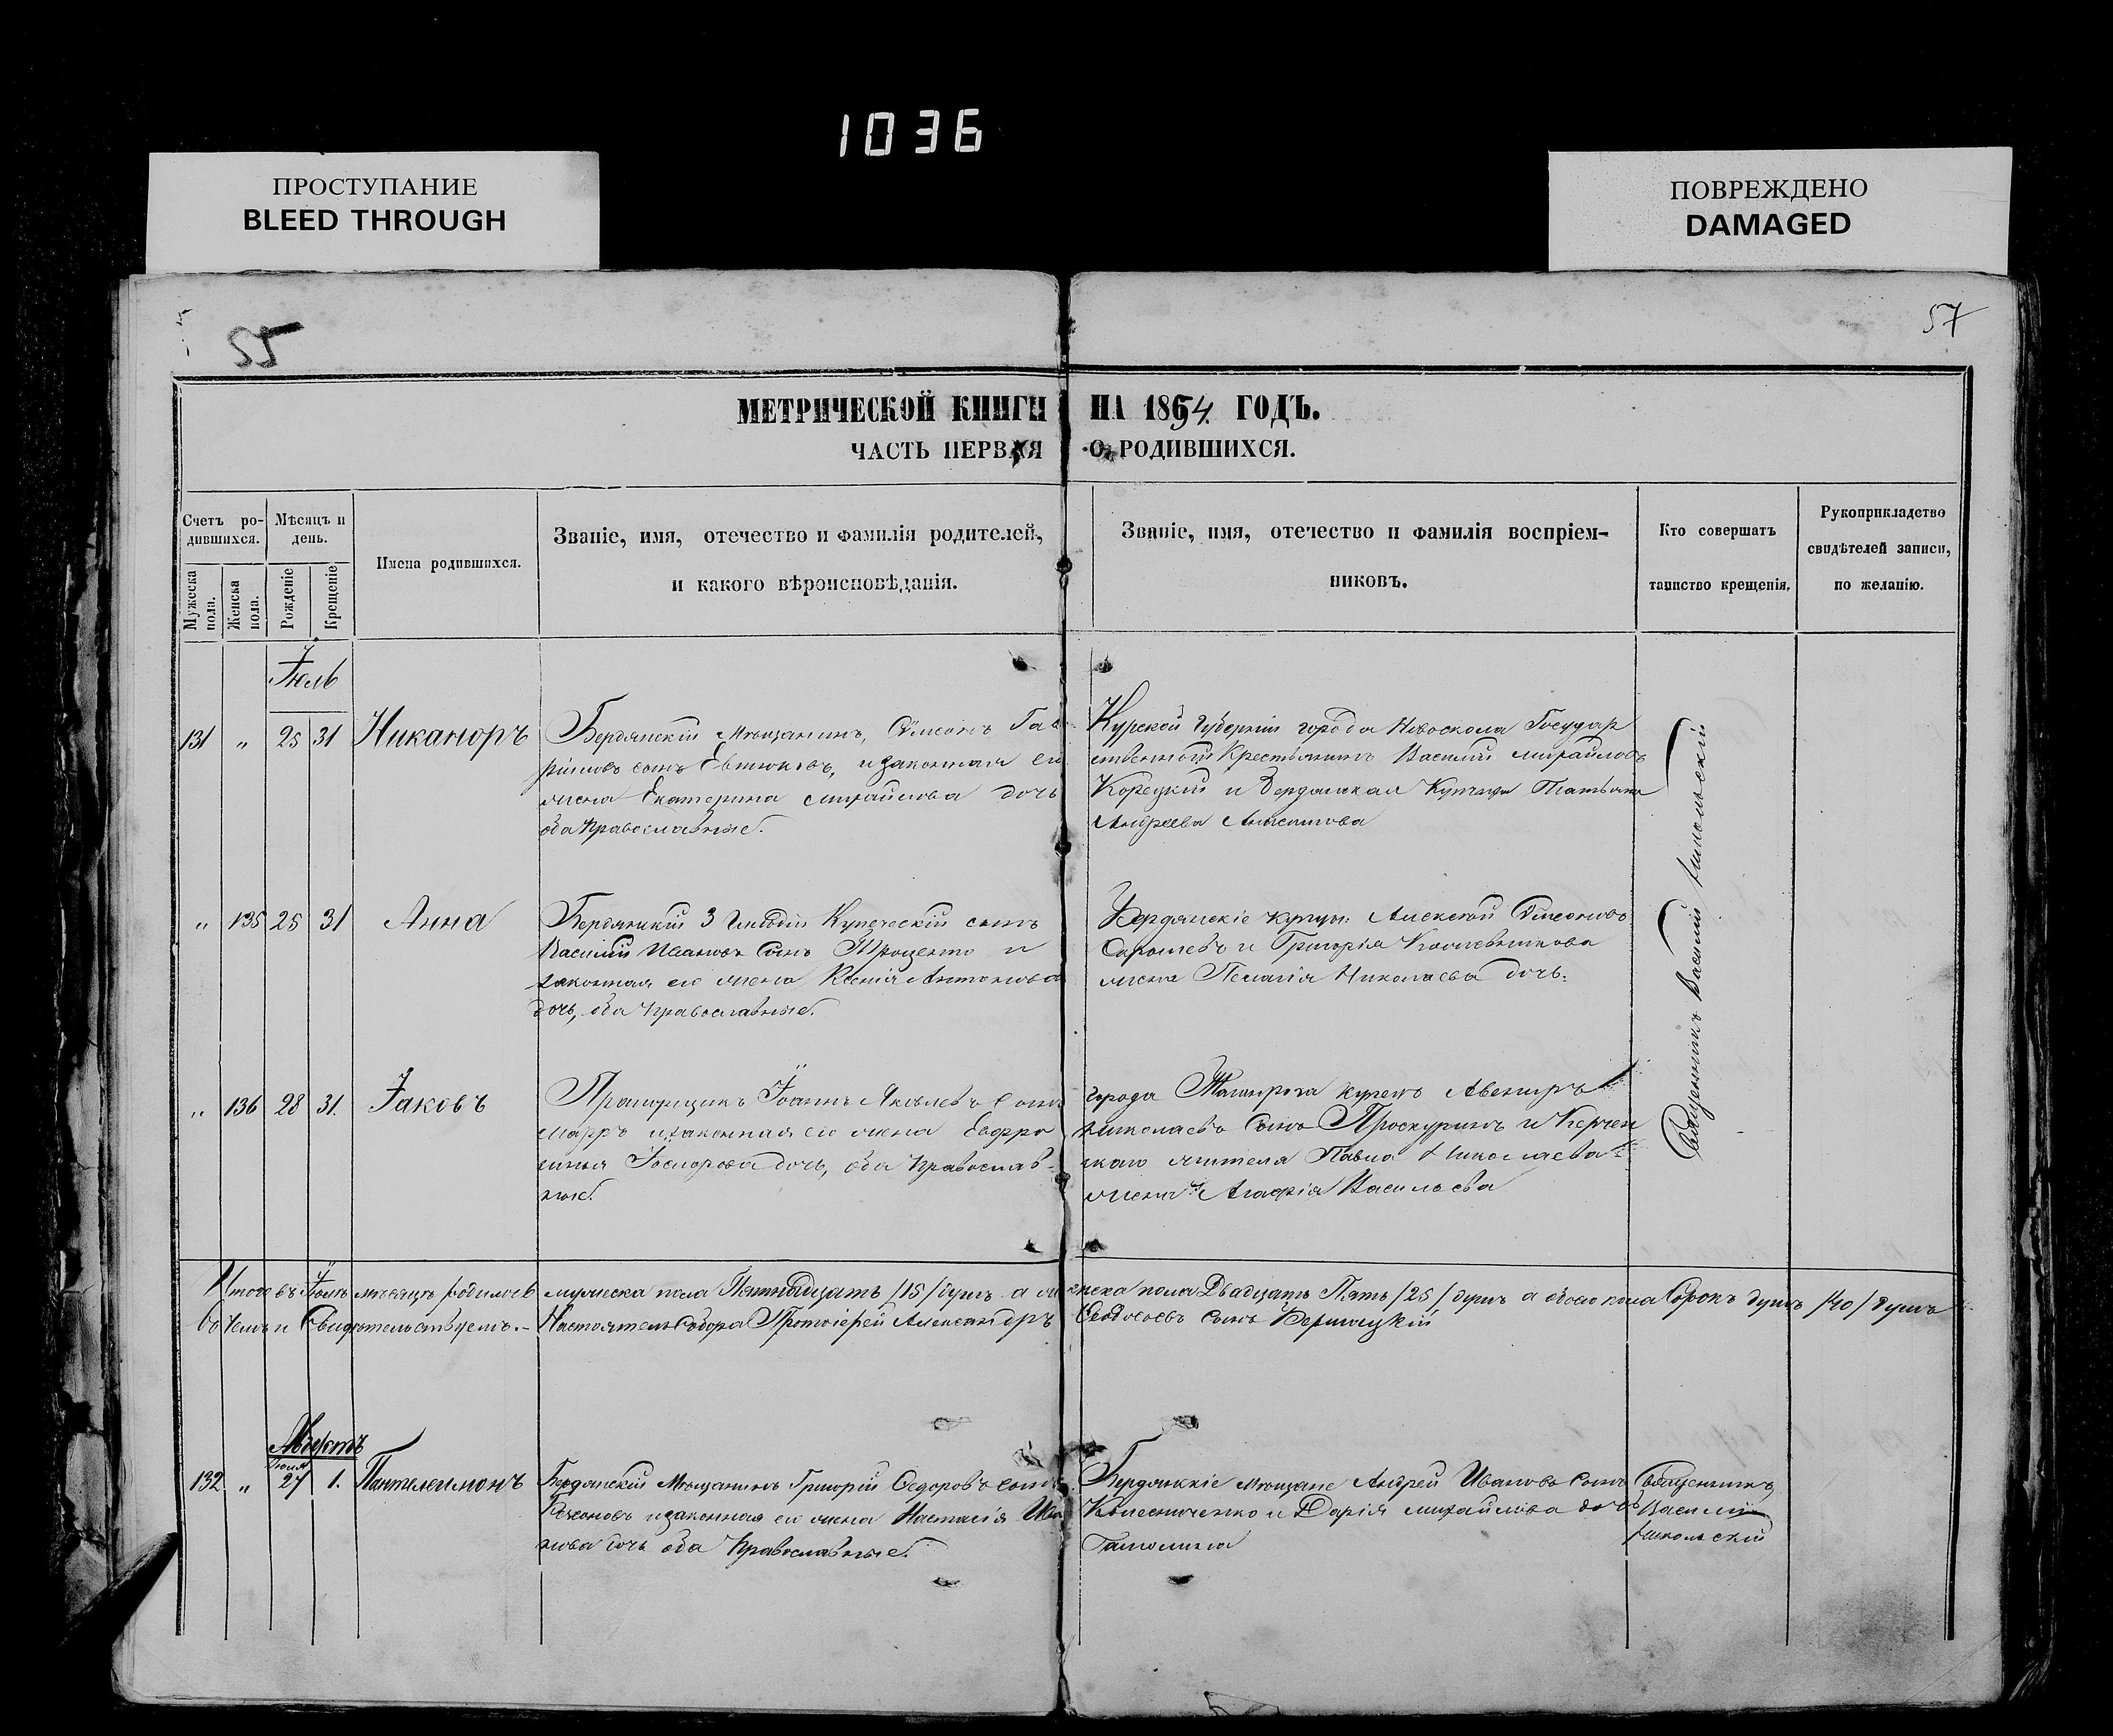 1036
ПРОСТУПАНИЕ
BLEED THROUGH
ПОВРЕЖДЕНО
DAMAGED
55
57
МЕТРИЧЕСКОЙ КНИГИ НА 1864. ГОДЪ.
ЧАСТЬ ПЕРВАЯ О РОДИВШИХСЯ.
Счетъ ро-
дившихся.
Мужеска пола.
Женска пола.
Мѣсяцъ и
день.
Рожденіе
Крещеніе
Имена родившихся.
Званіе, имя, отечество и фамилія родителей,
и какого вѣроисповѣданія.
Званіе, имя, отечество и фамилія воспріем-
никовъ.
Кто совершатъ
таинство крещенія.
Рукоприкладство
свидѣтелей записи,
по желанію.
Іюль
131 " 25 31 Никаноръ
Бердянскій Мѣщанинъ, Сѵмеонъ Гав
риловъ сынъ Евтюковъ, и законная его
жена Екатерина Михайлова дочь
оба Православные.
Курской Губерніи города Новоскола Государ
ственный Крестьянинъ Василій Михайловъ
Корецкій и Бердянская Купчиха Татьяна
Андреева
" 135 25 31 Анна
Бердянскій 3 Гильдіи Купеческій сынъ
Василій Ивановъ Сынъ Троценко и
законная его жена Ксенія Антонова
дочь, оба Православные.
Бердянскіе купцы: Алексей Сѵмеоновъ
и Григорія
жена Пелагія Николаева дочь.
" 136 28 31. Іаковъ
Прапорщикъ Іоаннъ Яковлевъ Сынъ
и законная его жена Евфро
синья дочь, оба Православ-
ные.
города Таганрога купецъ Авениръ
Николаевъ Сынъ Проскуринъ и Керчен
скаго жителя Павла Николаева
жена Агафія Васильева
Священникъ Василій Никольскій
Итого въ Іюлѣ мѣсяцѣ родилось мужеска пола Пятнадцать /15/ душъ а женска пола Двадцать Пять /25/ душъ а обоего пола Сорокъ душъ /40/ душъ
Въ чемъ и Свидѣтельствуемъ.- Настоятель Собора Протоіерей Александръ Ѳеодосіевъ Сынъ
Августъ
Іюля
132 " 27 1. Пантелеимонъ
Бердянскій Мѣщанинъ Григорій Ѳедоровъ сынъ
и законная его жена Настасія Ива
нова дочь оба Православные.
Бердянскіе мѣщане Андрей Ивановъ Сынъ
Колесниченко и Дарія Михайлова дочь
Священникъ
Василій
Никольскій